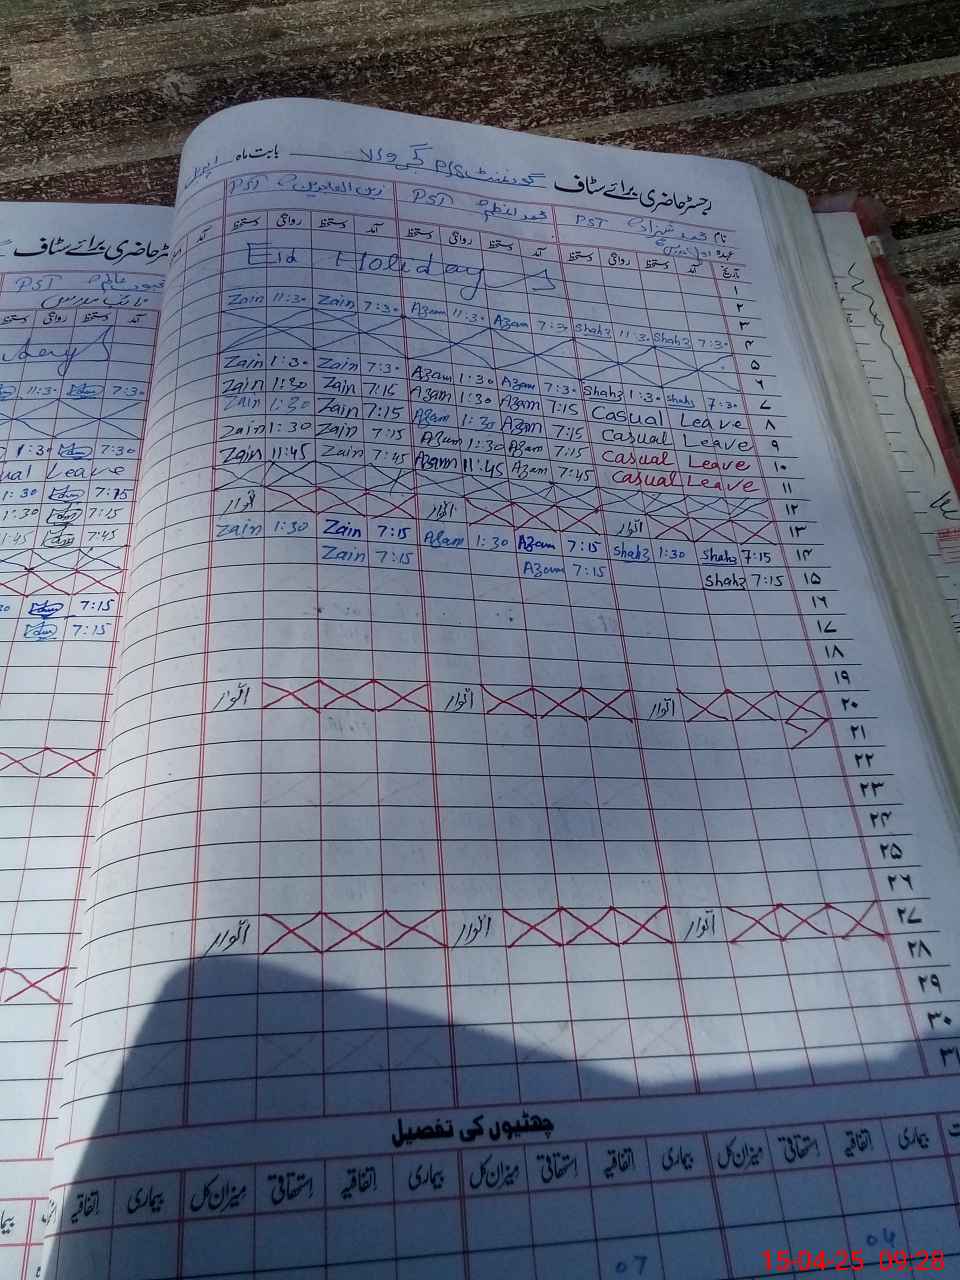 رجسٹر حاضری برائے سٹاف گورنمنٹ بابت ماہ اپریل
نام محمد شہزاد PST
محمد اعظم PST
زین العابدین PST
عہدہ
تاریخ آمد دستخط روانگی دستخط آمد دستخط روانگی دستخط آمد دستخط روانگی دستخط
Eid Holiday
۱
۲
۳
Zain 11:30 Zain 7:30 Azam 11:30 Azam 7:30 Shahz 11:30 Shahz 7:30 ۴
۵
۶
Zain 1:30 Zain 7:30 Azam 1:30 Azam 7:30 Shahz 1:30 Shahz 7:30 ۷
Zain 1:30 Zain 7:15 Azam 1:30 Azam 7:15 Casual Leave ۸
Zain 1:30 Zain 7:15 Azam 1:30 Azam 7:15 Casual Leave ۹
Zain 1:30 Zain 7:15 Azam 1:30 Azam 7:15 Casual Leave ۱۰
Zain 11:45 Zain 7:45 Azam 11:45 Azam 7:45 Casual Leave ۱۱
۱۲
اتوار اتوار اتوار ۱۳
Zain 1:30 Zain 7:15 Azam 1:30 Azam 7:15 Shahz 1:30 Shahz 7:15 ۱۴
Zain 7:15 Azam 7:15 Shahz 7:15 ۱۵
۱۶
۱۷
۱۸
۱۹
اتوار اتوار اتوار ۲۰
۲۱
۲۲
۲۳
۲۴
۲۵
۲۶
اتوار اتوار اتوار ۲۷
۲۸
۲۹
۳۰
۳۱
چھٹیوں کی تفصیل
بیماری اتفاقیہ استحقاقی میزان کل بیماری اتفاقیہ استحقاقی میزان کل بیماری اتفاقیہ استحقاقی میزان کل بیماری اتفاقیہ
04
07
رجسٹر حاضری برائے سٹاف
PST
آمد دستخط روانگی دستخط
11:30 7:30
1:30 7:30
Leave
1:30 7:15
1:30 7:15
7:45
7:15
7:15
15-04-25 09:28